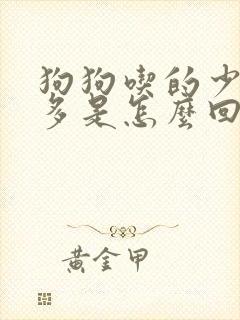 狗狗喫的少
多是怎麼回
黃金甲